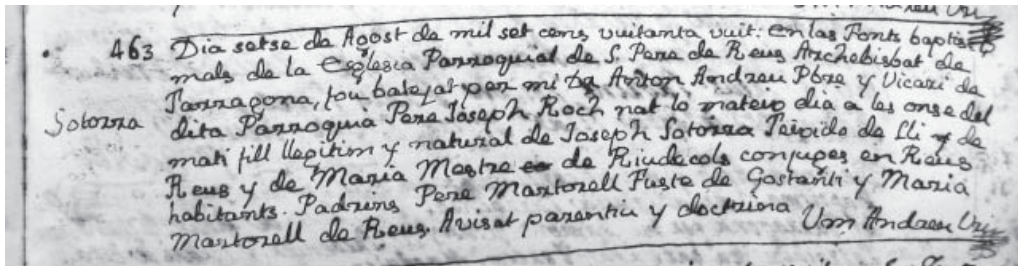 463 Dia setse de Agost de mil set cens vuitanta vuit: en las Fonts baptis
mals de la Esglesia Parroquial de S. Pere de Reus Archebisbat de
Tarragona, fou batejat per mi Anton Andreu Pbre y Vicari de
Sotorra
dita Parroquia Pere Joseph Roch nat lo mateix dia a las onse del
mati fill llegitim y natural de Joseph Sotorra Teixido de Lli de
Reus y de Maria Mestre de Riudecols conjuges en Reus
habitants. Padrins Pere Martorell Fuste de Gostanti y Maria
Martorell de Reus. Avisat parentiu y doctrina
Andreu